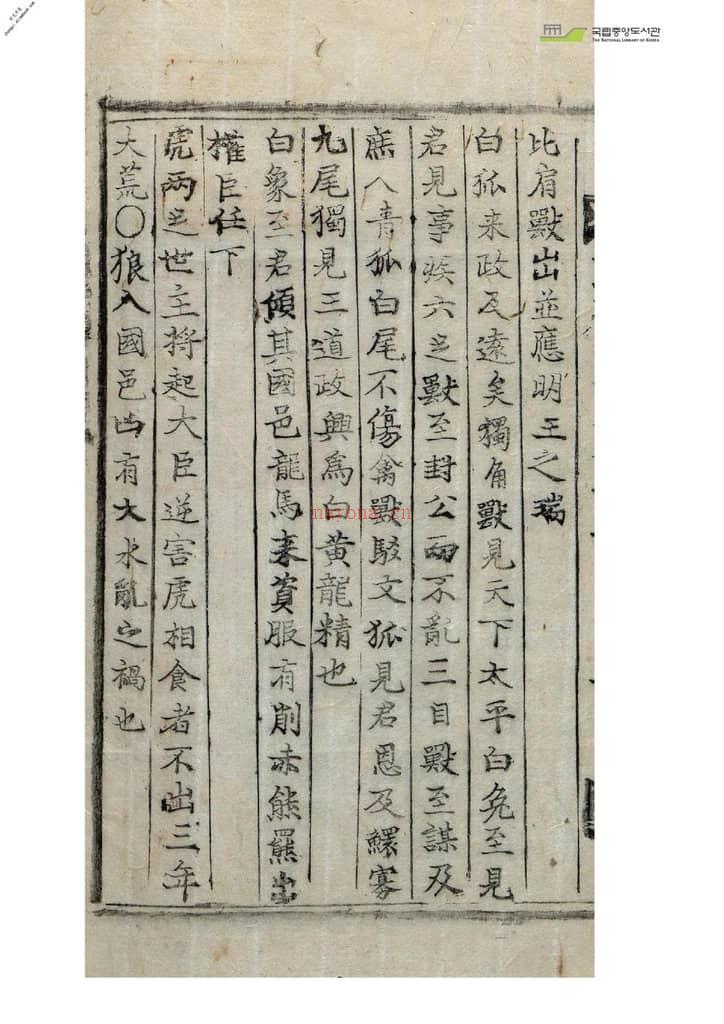 比肩獸出並應明王之瑞
白狐来政及遠矣獨角獸見天下太平白免至見
君見事疾六足獸至封公而不亂三目獸至謀及
庶人青狐白尾不傷禽獸駁文狐見君恩及鰥寡
九尾獨見三道政興爲白黄龍精也
白象至君傾其國邑龍馬来資服有削赤熊羆出
權臣任下
虎兩足世主將起大臣逆害虎相食者不出三年
大荒〇狼入國邑凶有大水亂之禍也
국립중앙도서관
THE NATIONAL LIBRARY OF KOREA
nayona.cn